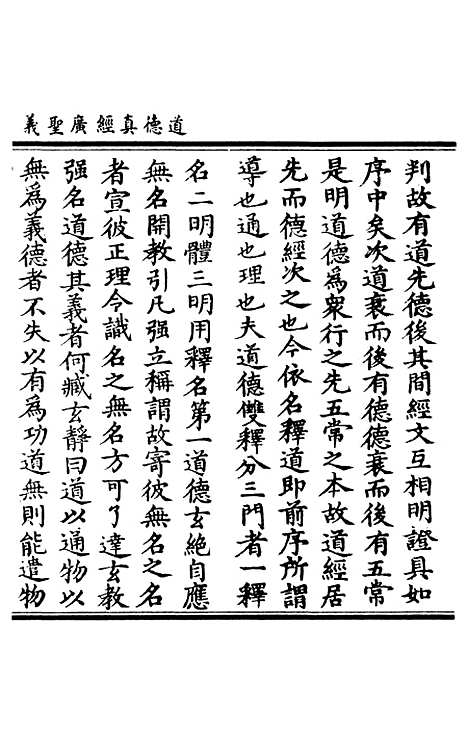 道德真經廣聖義
判故有道先德後其間經文互相明證具如
序中矣次道衰而後有德德衰而後有五常
是明道德爲衆行之先五常之本故道經居
先而德經次之也今依名釋道即前序所謂
導也通也理也夫道德雙釋分三門者一釋
名二明體三明用釋名第一道德玄絶自應
無名開教引凡强立稱謂故寄彼無名之名
者宣彼正理令識名之無名方可了達玄教
强名道德其義者何臧玄靜曰道以通物以
無爲義德者不失以有爲功道無則能遣物